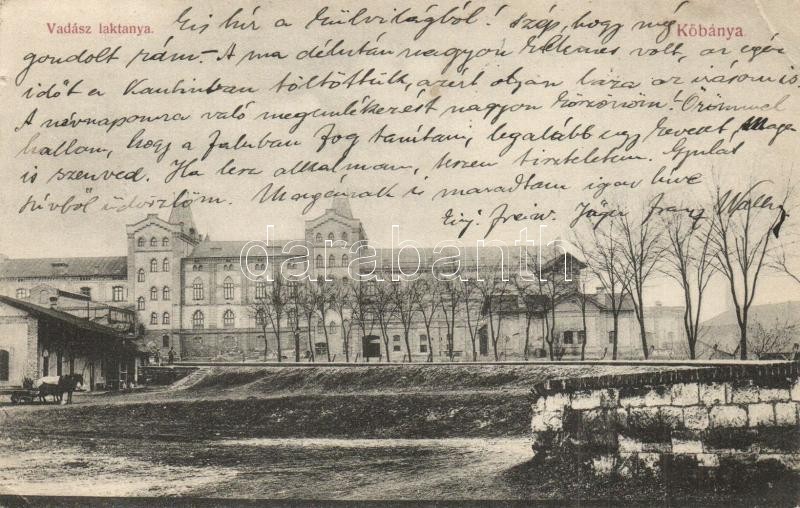 Vadász laktanya.
Kőbánya.
Eis hír a Külvilágból! Szép, hogy még
gondolt rám. - A ma délután nagyon volt, az egész
időt a Kantinban töltöttük, azért olyan az írásom is
A névnapomra való megemlékezést nagyon köszönöm! Örömmel
hallom, hogy a faluban fog tanítani, legalább egy keveset Maga
is szenved. Ha lesz alkalmam, teszem tiszteletem. Gyulát
szívből üdvözlöm. Magának is maradtam igaz híve
Einj. freiw. Jäger Franz
darabanth